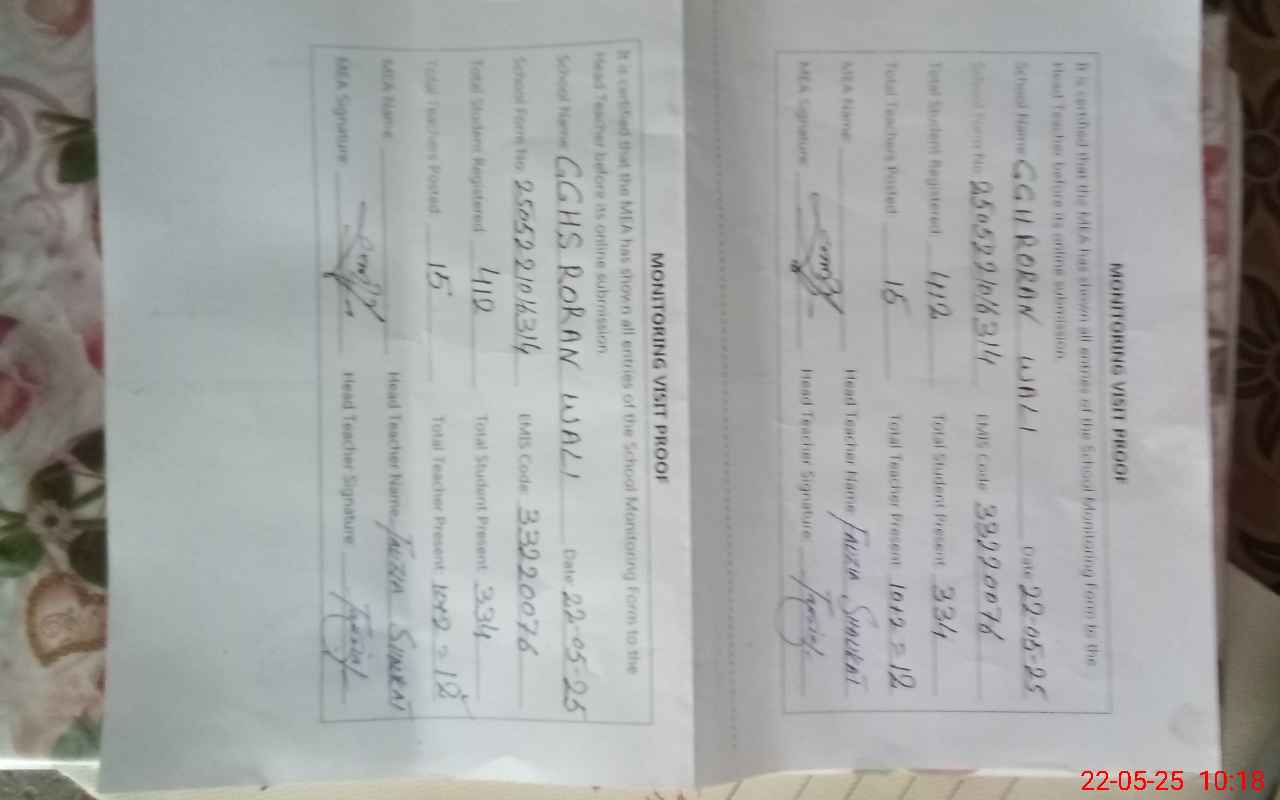 MONITORING VISIT PROOF
It is certified that the MEA has shown all entries of the School Monitoring Form to the
Head Teacher before its online submission.
School Name GGH RORAN WALI Date 22-05-25
School Form No. EMIS Code 33220076
Total Student Registered 412 Total Student Present 334
Total Teachers Posted 15 Total Teacher Present 10+2=12
MEA Name Head Teacher Name FAUZIA SHAUKAT
MEA Signature Head Teacher Signature
MONITORING VISIT PROOF
It is certified that the MEA has shown all entries of the School Monitoring Form to the
Head Teacher before its online submission.
School Name GGHS RORAN WALI Date 22-05-25
School Form No. EMIS Code 33220076
Total Student Registered 412 Total Student Present 334
Total Teachers Posted 15 Total Teacher Present 10+2=12
MEA Name Head Teacher Name FAUZIA SHAUKAT
MEA Signature Head Teacher Signature
22-05-25 10:18